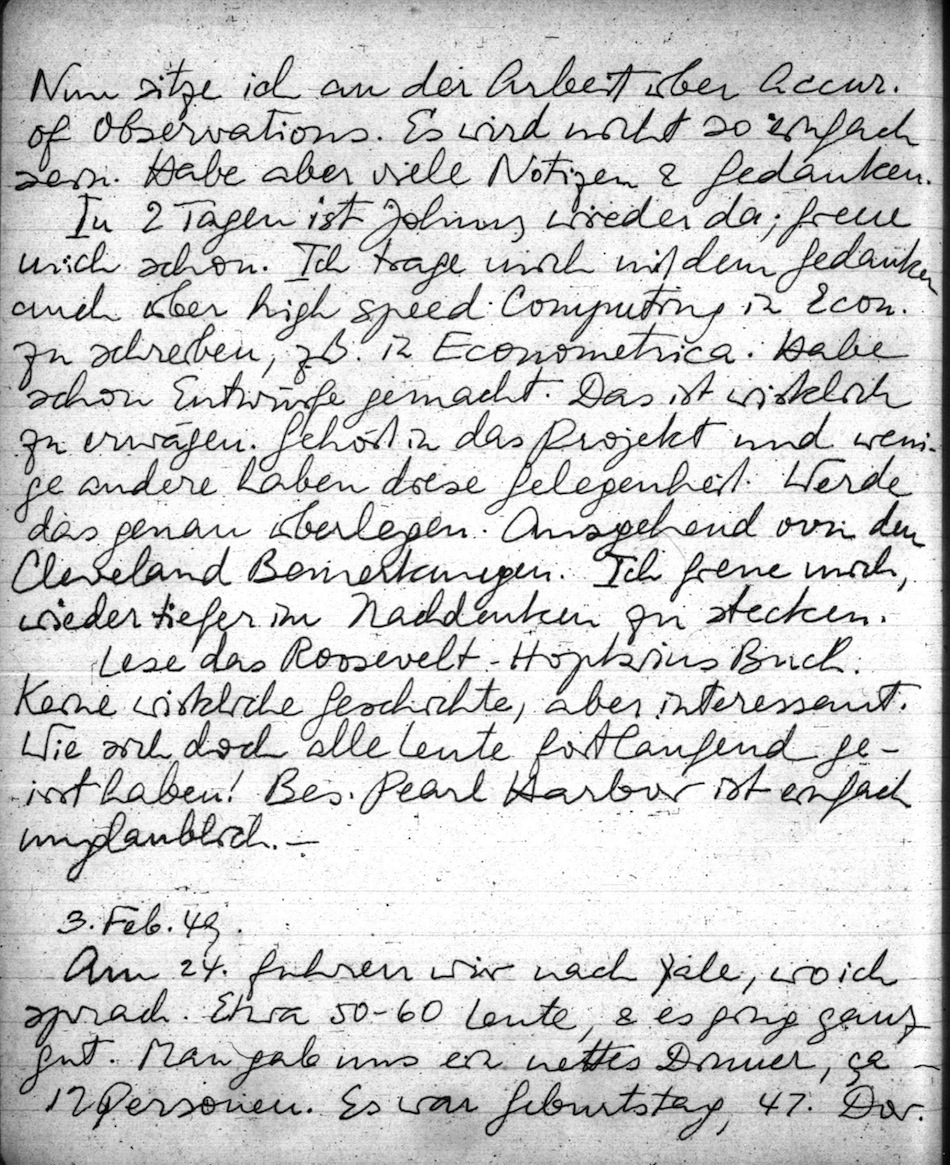 Nun sitze ich an der Arbeit über Accur.
of Observations. Es wird nicht so einfach
sein. Habe aber viele Notizen & Gedanken.
In 2 Tagen ist Johnny wieder da; freue
mich schon. Ich trage mich mit dem Gedanken
auch über high speed Computing in Econ.
zu schreiben, z.B. in Econometrica. Habe
schon Entwürfe gemacht. Das ist wirklich
zu erwägen. Gehört in das Projekt und weni-
ge andere haben diese Gelegenheit. Werde
das genau überlegen. Ausgehend von den
Cleveland Bemerkungen. Ich freue mich,
wieder tiefer im Nachdenken zu stecken.
Lese das Roosevelt-Hopkins Buch.
Keine wirkliche Geschichte, aber interessant.
Wie sich doch alle Leute fortlaufend ge-
irrt haben! Bes. Pearl Harbor ist einfach
unglaublich.—
3. Feb. 49.
Am 24. fuhren wir nach Yale, wo ich
sprach. Etwa 50-60 Leute, & es ging ganz
gut. Man gab uns ein nettes Dinner, ca
12 Personen. Es war Geburtstag, 47. Dor.